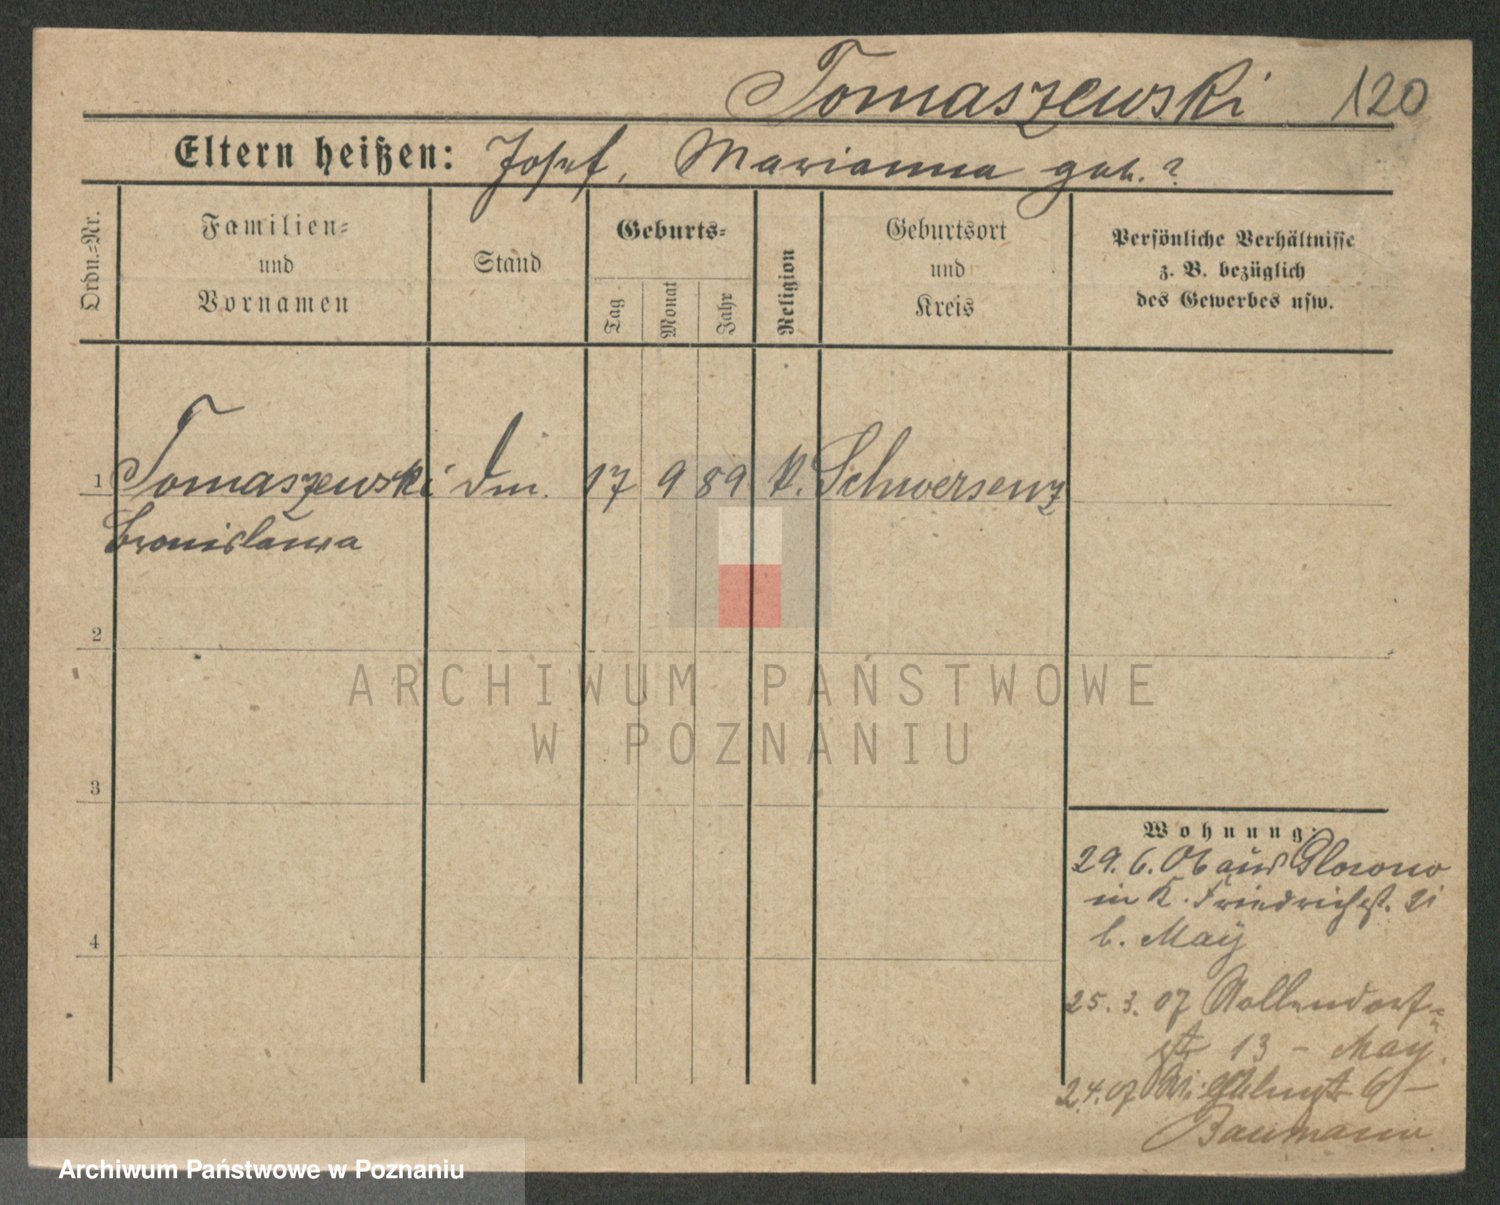 Tomaszewski 120
Eltern heißen: Josef, Marianna geb. ?
Ordn.-Nr.
Familien-
und
Vornamen
Stand
Geburts-
Tag
Monat
Jahr
Religion
Geburtsort
und
Kreis
Persönliche Verhältnisse
z. B. bezüglich
des Gewerbes usw.
1 Tomaszewski 17 9 89 k. Schwersenz
Bronislawa
2
ARCHIWUM PAŃSTWOWE
W POZNANIU
3
4
Wohnung:
29. 6. 06 aus Glowno
in K. Friedrichst. 21
b. May
25. 3. 07 Nollendorf-
str 13 - May
2.4.07 6 -
Baumann
Archiwum Państwowe w Poznaniu